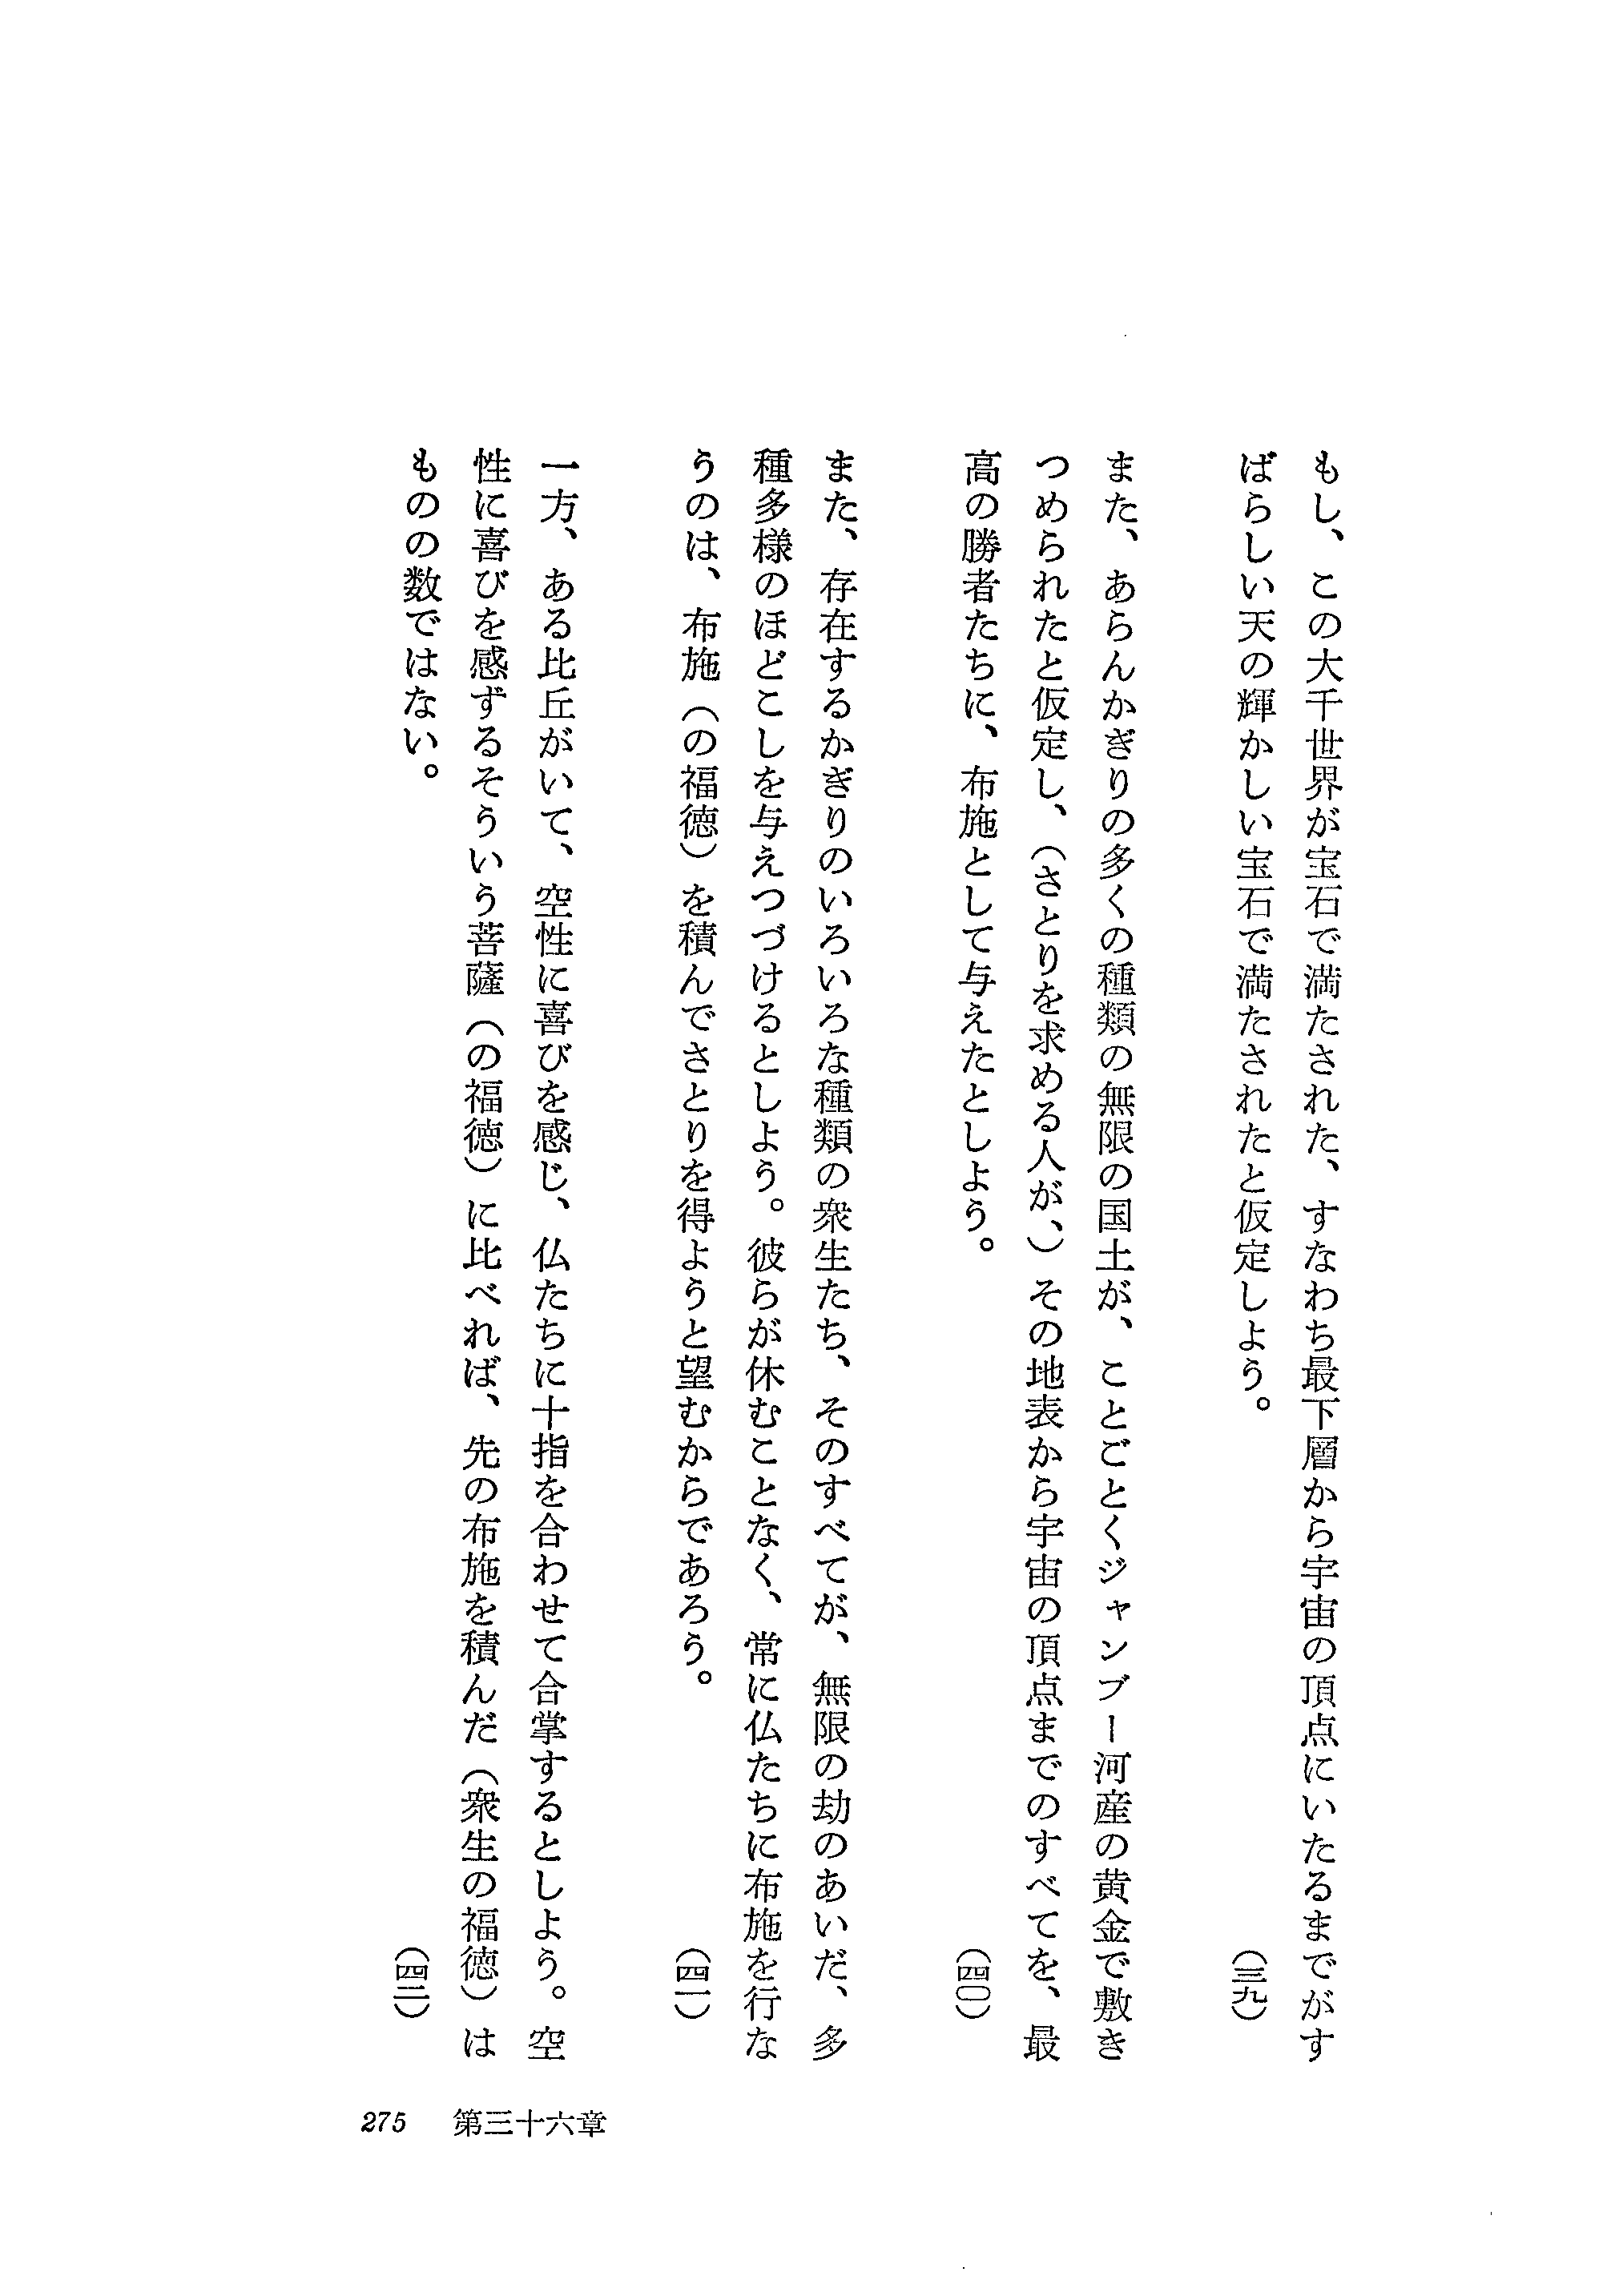 もし、この大千世界が宝石で満たされた、すなわち最下層から宇宙の頂点にいたるまでがす
ばらしい天の輝かしい宝石で満たされたと仮定しよう。（三九）
また、あらんかぎりの多くの種類の無限の国土が、ことごとくジャンブー河産の黄金で敷き
つめられたと仮定し、（さとりを求める人が、）その地表から宇宙の頂点までのすべてを、最
高の勝者たちに、布施として与えたとしよう。（四〇）
また、存在するかぎりのいろいろな種類の衆生たち、そのすべてが、無限の劫のあいだ、多
種多様のほどこしを与えつづけるとしよう。彼らが休むことなく、常に仏たちに布施を行な
うのは、布施（の福徳）を積んでさとりを得ようと望むからであろう。（四一）
一方、ある比丘がいて、空性に喜びを感じ、仏たちに十指を合わせて合掌するとしよう。空
性に喜びを感ずるそういう菩薩（の福徳）に比べれば、先の布施を積んだ（衆生の福徳）は
ものの数ではない。（四二）
275 第三十六章